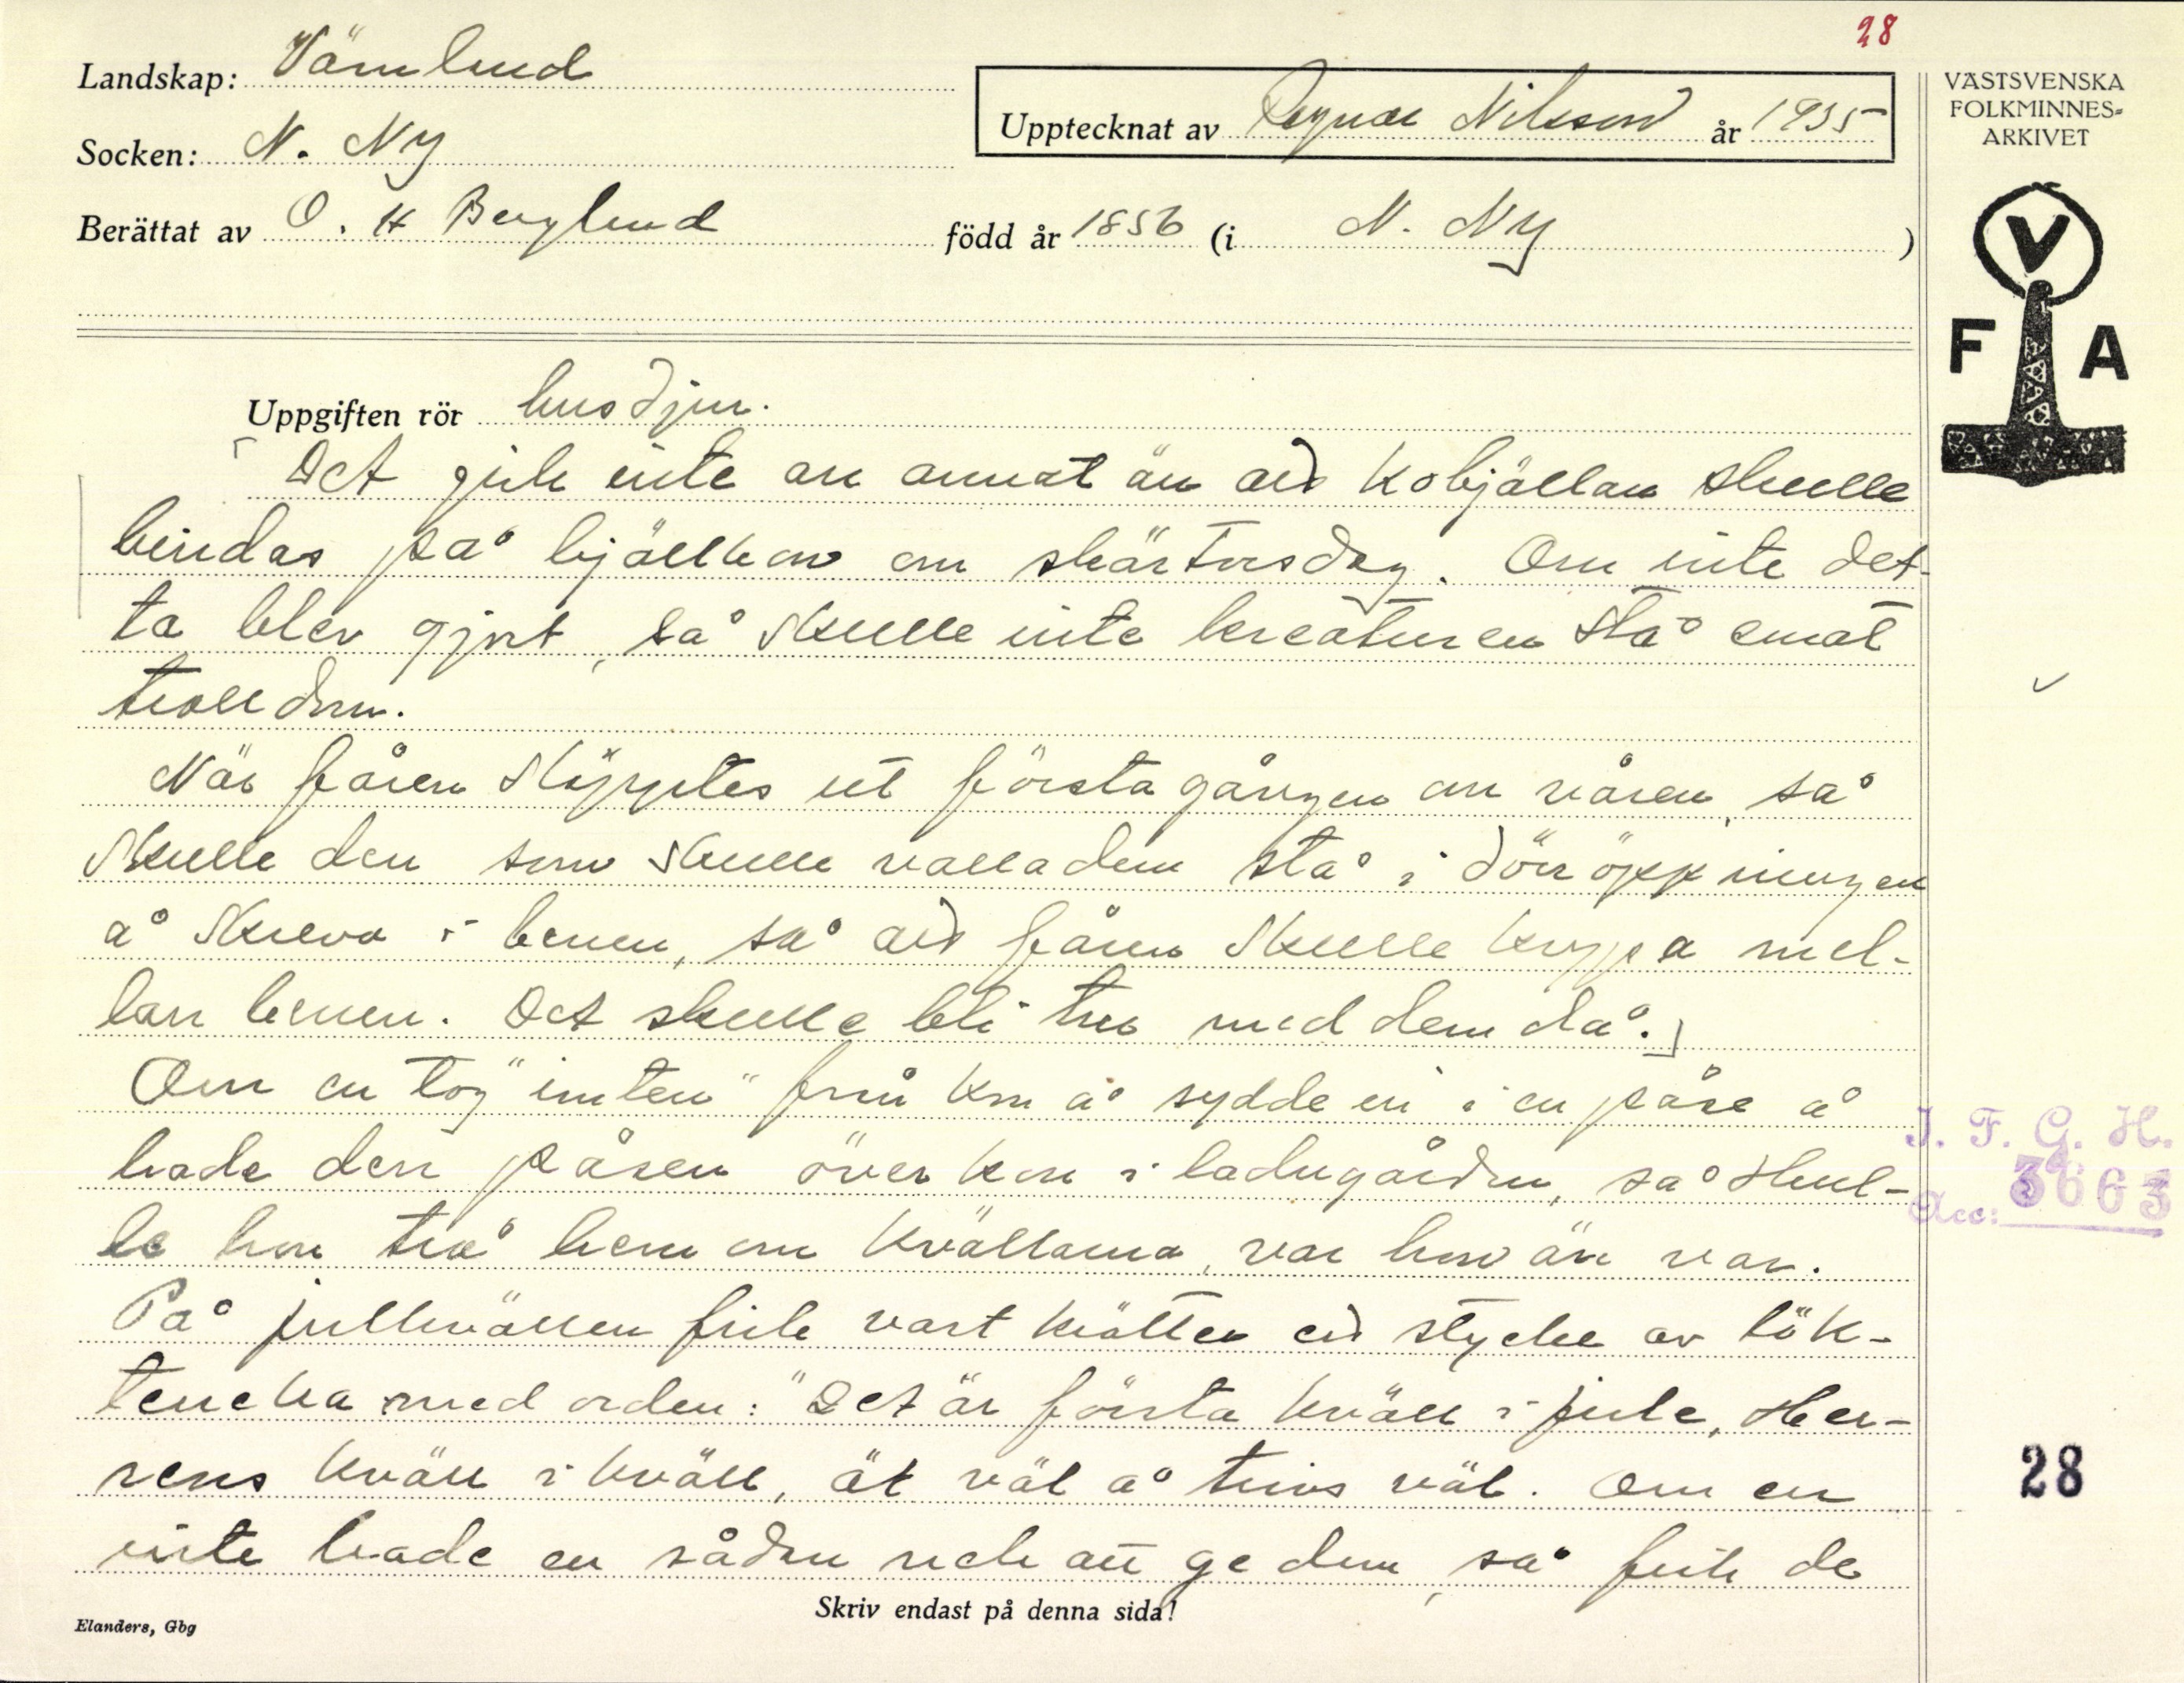 28
Landskap: Värmland
Socken: N. Ny
Upptecknat av Ragnar Nilsson år 1935
Berättat av O. H Berglund född år 1856 (i N. Ny )
VÄSTSVENSKA
FOLKMINNES-
ARKIVET
V
F A
Uppgiften rör husdjur.
Det gick inte an annat än att kobjällan skulle
bindas på bjällkon om skärtorsdag. Om inte det-
ta blev gjort, så skulle inte kreaturen stå emot
trolldom.
När fåren släpptes ut första gången om våren, så
skulle den som skulle valla dem stå i dörröppningen
å skreva i benen, så att fåren skulle krypa mel-
lan benen. Det skulle bli tur med dem då.
Om en tog "imten" från kon å sydde in i en påse å
hade den påsen över kon i ladugården, så skul-
le hon trå hem om kvällarna, var hon än var.
På julkvällen fick vart kritter ett stycke av lök-
med orden: "Det är första kväll i jule, Her-
rens kväll i kväll, ät väl å trivs väl. Om en
inte hade en sådan att ge dem, så fick de
Skriv endast på denna sida!
Elanders, Gbg
I. F. G. H.
Acc: 3663
28